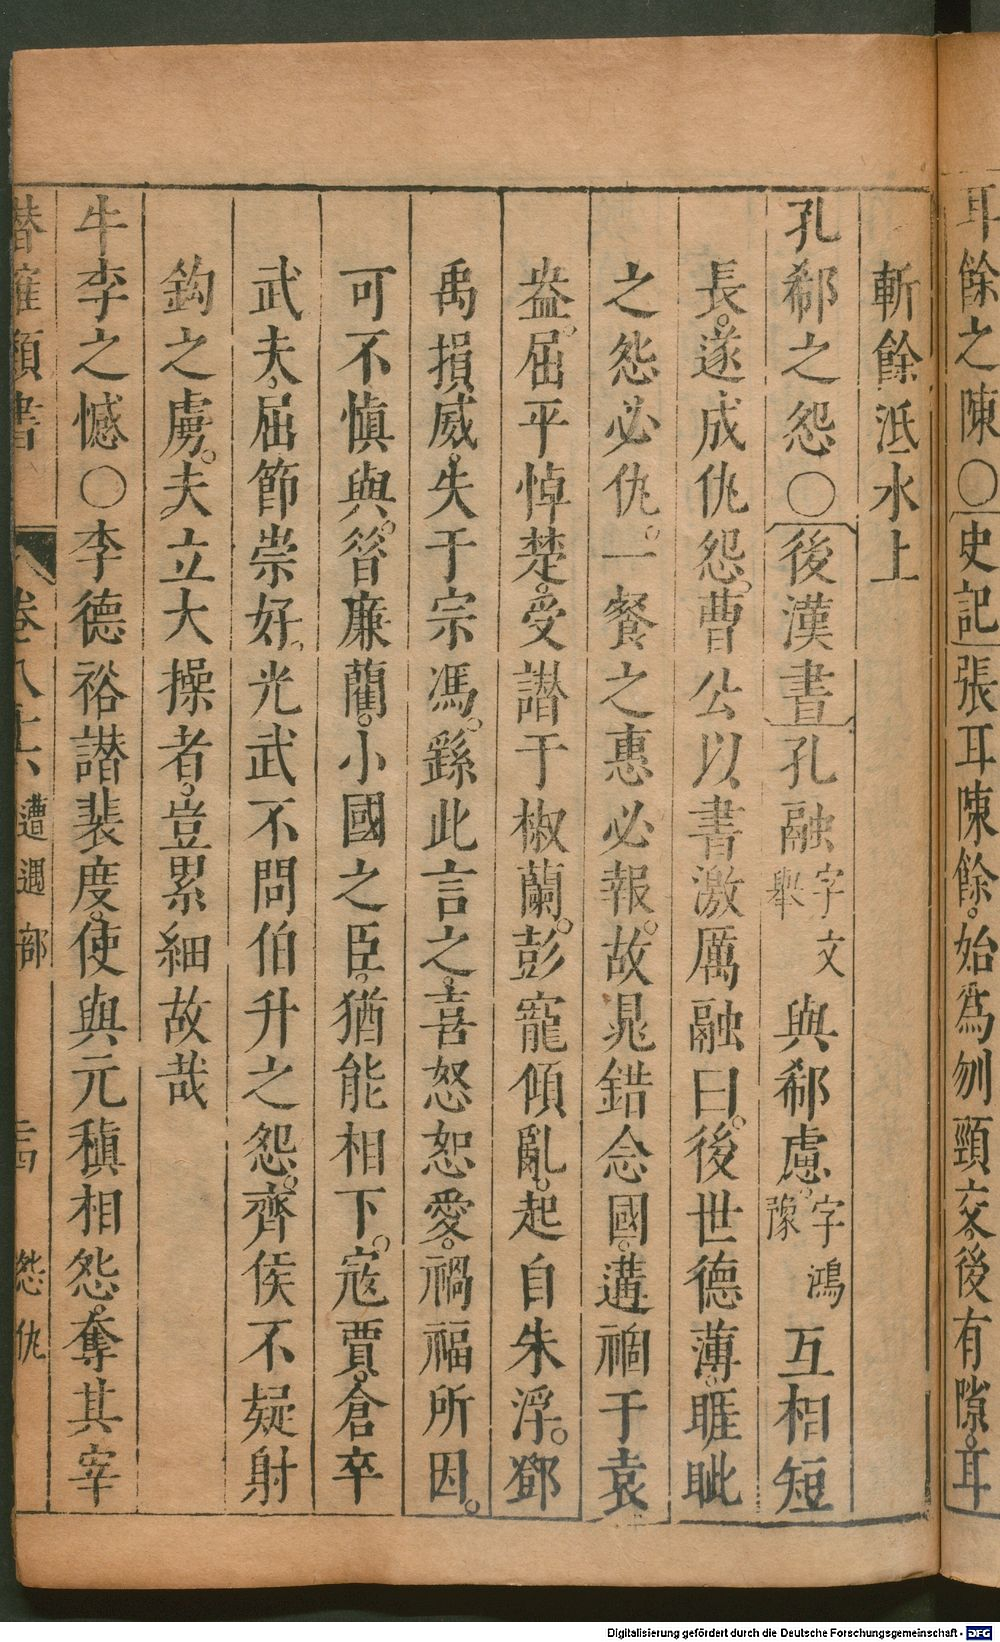 耳餘之陳〇史記張耳陳餘。始爲刎頸交。後有隙。耳
斬餘泜水上
孔郗之怨〇後漢書孔融字文舉與郗慮。字鴻豫互相短
長。遂成仇怨。曹公以書激厲融曰。後世德薄。睚眦
之怨必仇。一餐之惠必報。故晁錯念國。遘禍于袁
盎。屈平悼楚。受譖于椒蘭。彭寵傾亂。起自朱浮。鄧
禹損威。失于宗馮。繇此言之。喜怒恕愛。禍福所因。
可不慎與。昝廉藺。小國之臣。猶能相下。寇賈。倉卒
武夫。屈節崇好。光武不問伯升之怨。齊侯不疑射
鈎之虜。夫立大操者。豈累細故哉
牛李之憾〇李德裕譖裴度。使與元稹相怨。奪其宰
潛確類書 卷八十六 遭遇部 怨仇
Digitalisierung gefördert durch die Deutsche Forschungsgemeinschaft - DFG